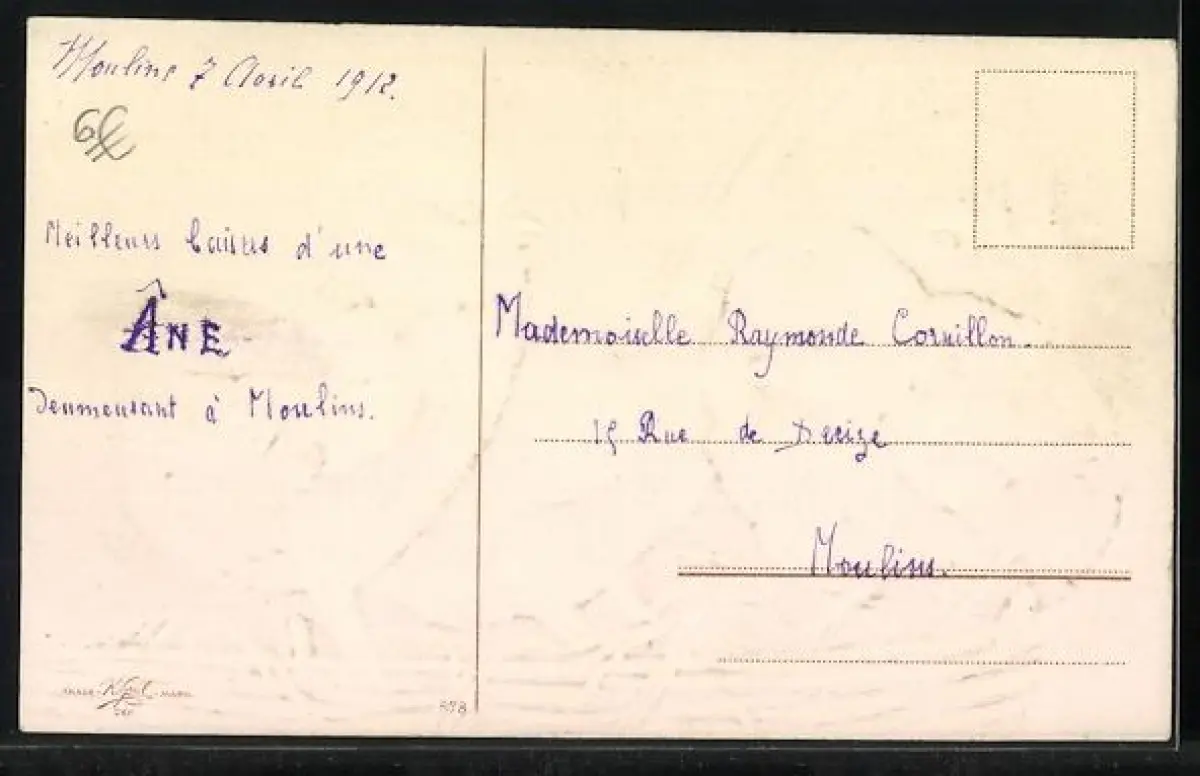 Moulins 7 Avril 1912.
Meilleurs baisers d'une
ÂNE
Demeurant à Moulins.
Mademoiselle Raymonde Cornillon.
15 Rue de Decize
Moulins.